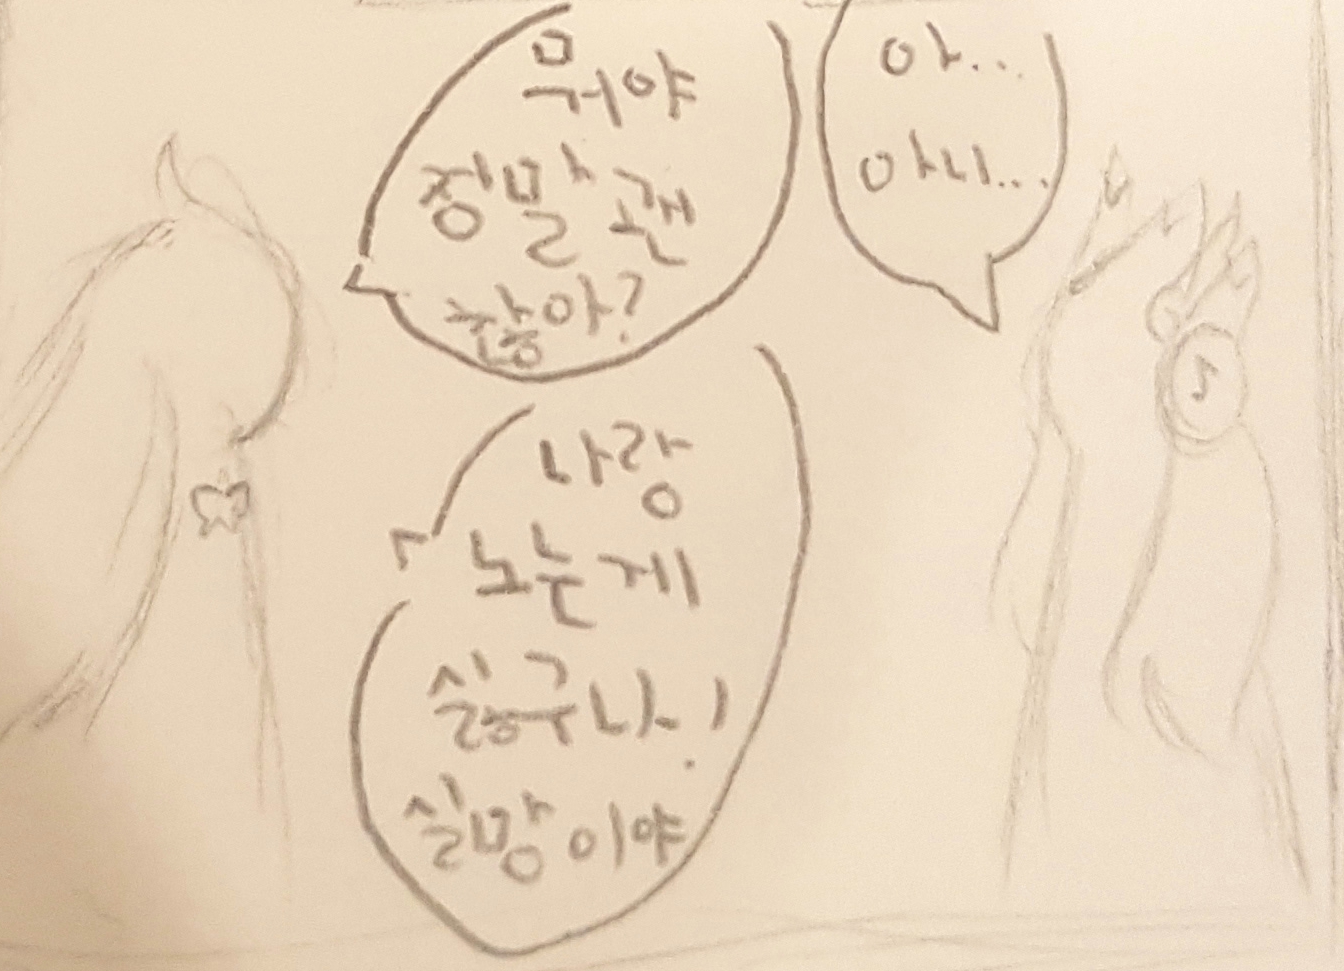 뭐야
정말 괜
찮아?
아...
아니...
나랑
노는 게
싫구나!
실망이야